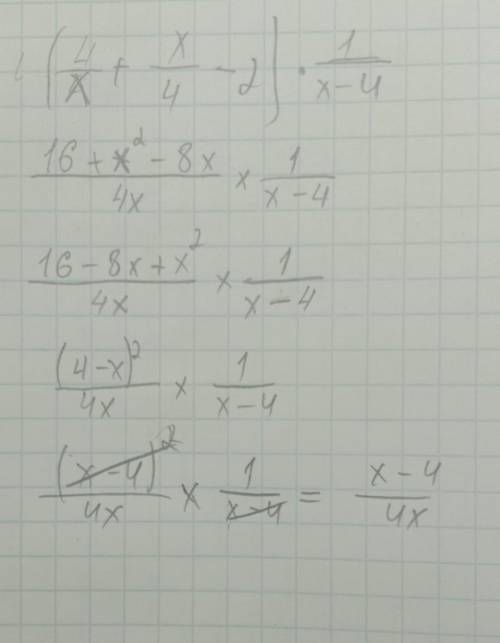 (4/x + x/4 - 2) · 1/(x-4)
(16 + x² - 8x)/4x × 1/(x-4)
(16 - 8x + x²)/4x × 1/(x-4)
(4-x)²/4x × 1/(x-4)
(x-4)²/4x × 1/(x-4) = (x-4)/4x